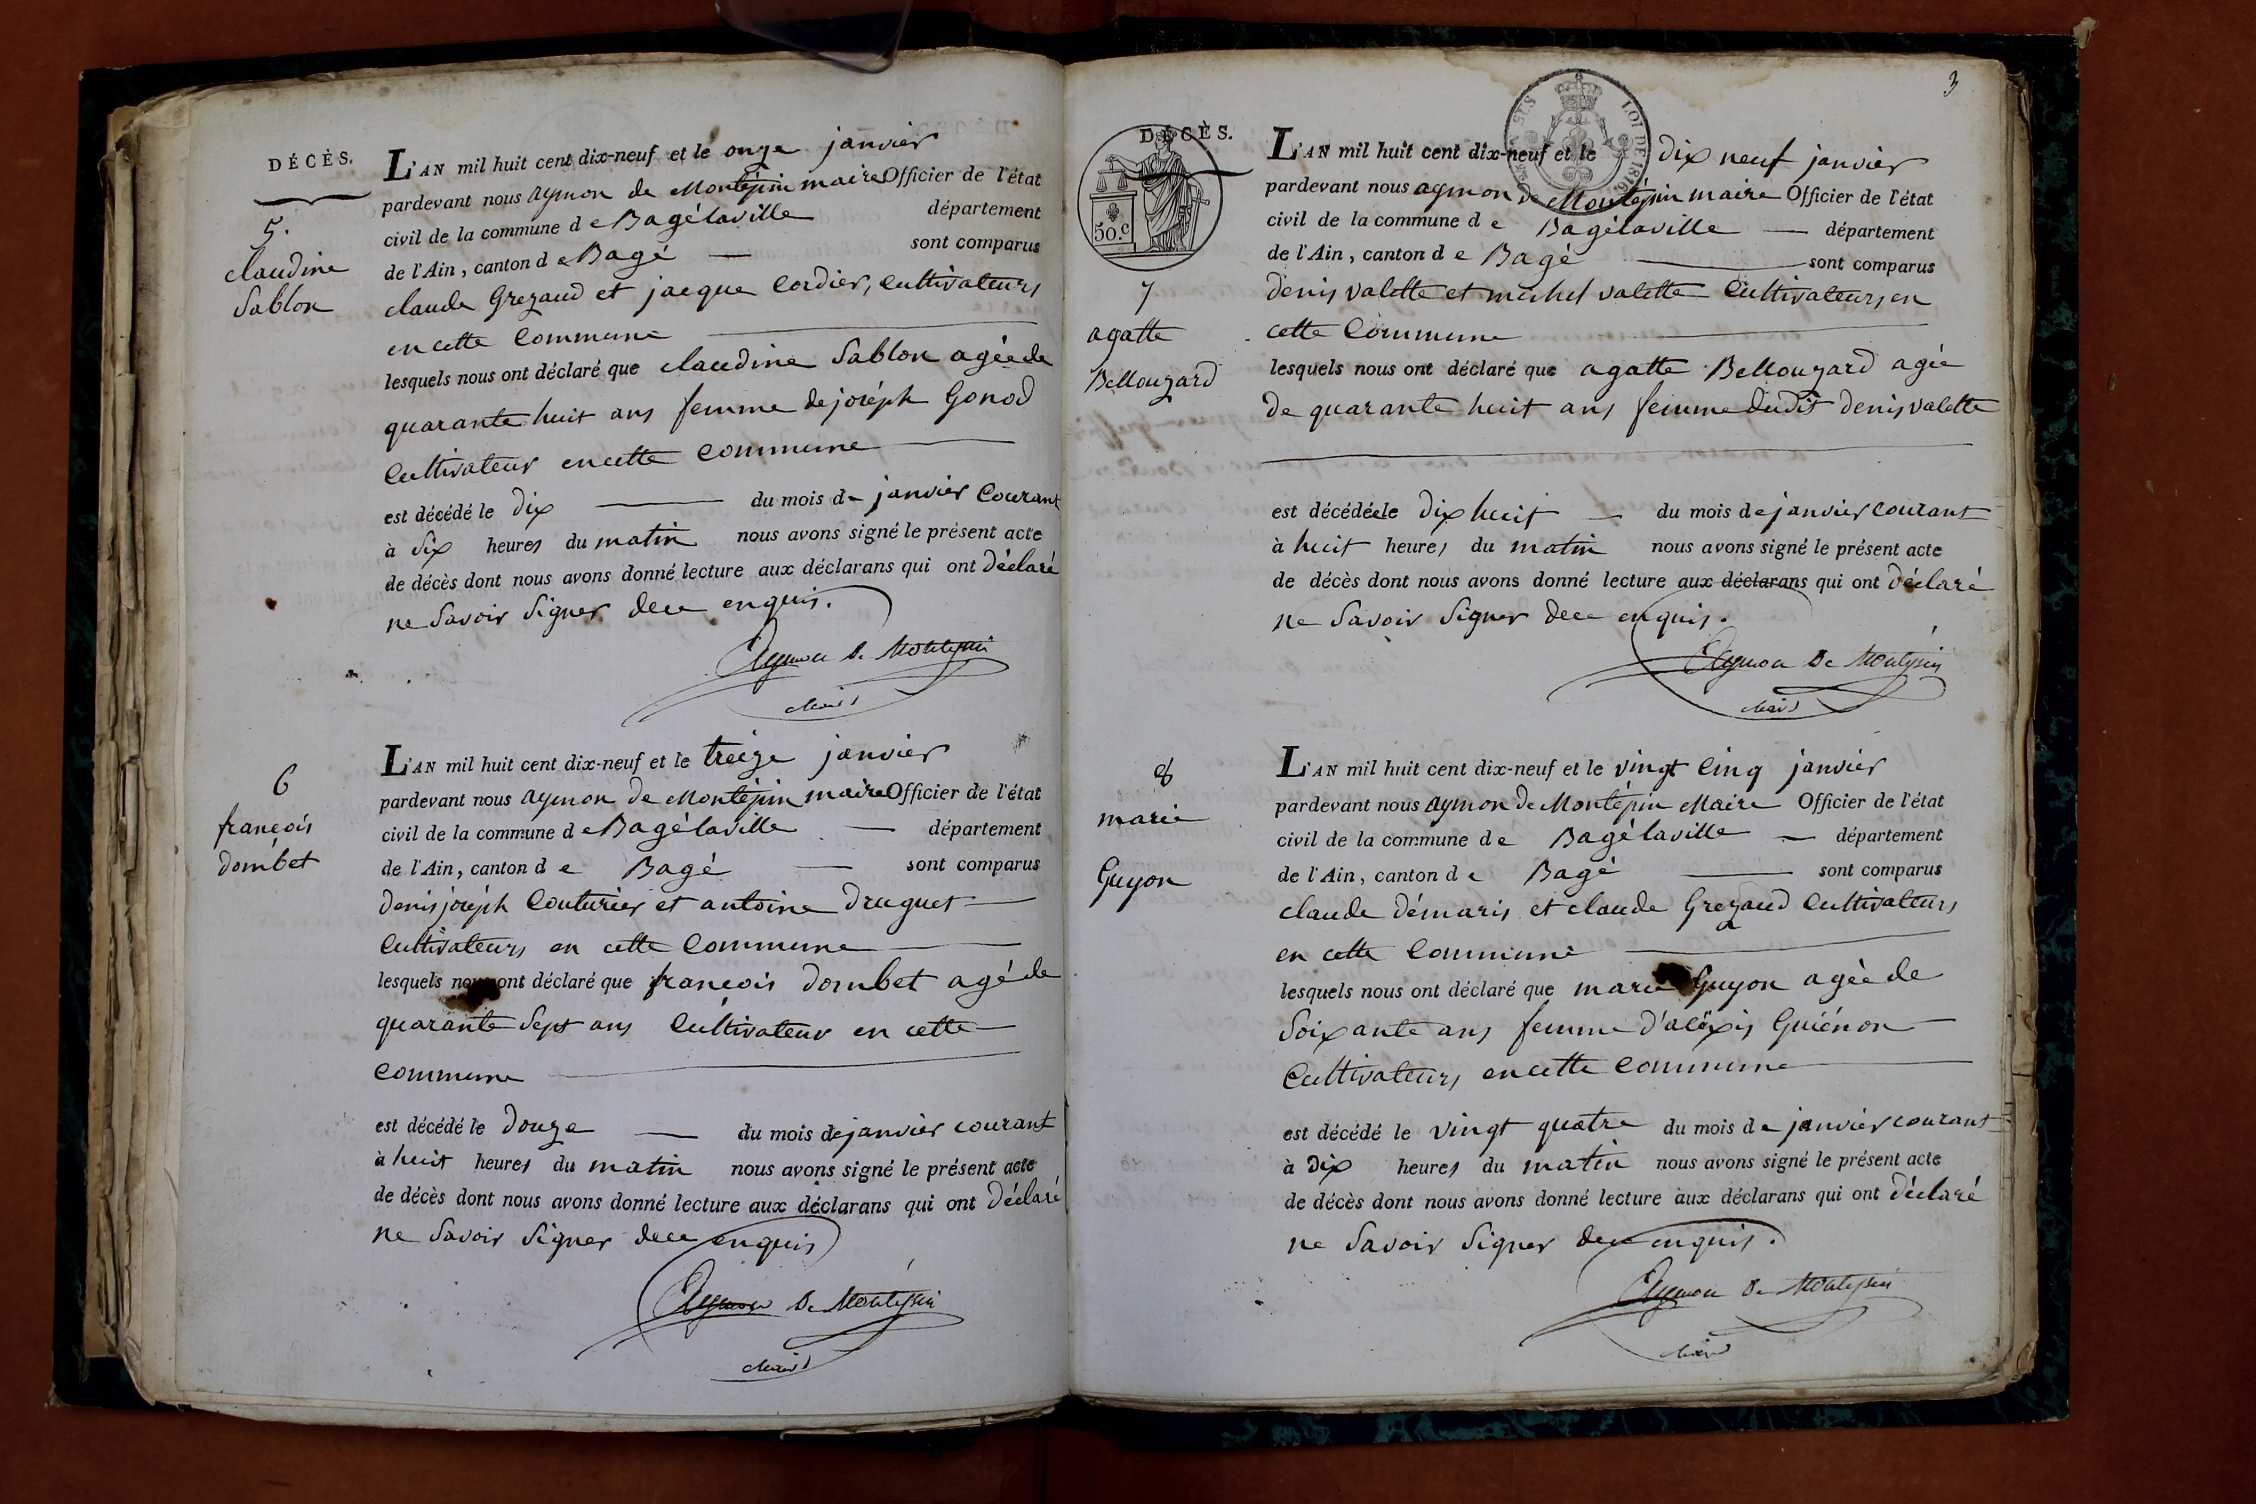 DÉCÈS.
5.
claudine
Sablon
L'AN mil huit cent dix-neuf et le onze janvier
pardevant nous aymon de Montépin maire Officier de l'état
civil de la commune de Bagélaville département
de l'Ain, canton de Bagé — sont comparus
claude Grezaud et jacque Cordier, cultivateurs
en cette Commune
lesquels nous ont déclaré que claudine Sablon agée de
quarante huit ans femme de joséph Gonod
Cultivateur en cette Commune
est décédé le dix — du mois de janvier Courant
à Six heures du matin nous avons signé le présent acte
de décès dont nous avons donné lecture aux déclarans qui ont déclaré
ne Savoir Signer de ce enquis.
Aymon De Montépin
Maire
6
françois
dombet
L'AN mil huit cent dix-neuf et le treize janvier
pardevant nous aymon de Montépin maire Officier de l'état
civil de la commune de Bagélaville — département
de l'Ain, canton de Bagé — sont comparus
denis joséph Couturier et antoine druguet
Cultivateurs en cette Commune
lesquels nous ont déclaré que françois dombet agé de
quarante Sept ans Cultivateur en cette
commune
est décédé le douze — du mois de janvier courant
à huit heures du matin nous avons signé le présent acte
de décès dont nous avons donné lecture aux déclarans qui ont déclaré
ne Savoir Signer de ce enquis
Aymon De Montépin
Maire
3
DÉCÈS.
50.c
LOI DE 1816
7
agatte
Bellouzard
L'AN mil huit cent dix-neuf et le dix neuf janvier
pardevant nous aymon de Montépin maire Officier de l'état
civil de la commune de Bagélaville — département
de l'Ain, canton de Bagé — sont comparus
denis valette et michel valette Cultivateurs en
cette Commune
lesquels nous ont déclaré que agatte Bellouzard agée
de quarante huit ans femme dudit denis valette
est décédée le dix huit — du mois de janvier courant
à huit heures du matin nous avons signé le présent acte
de décès dont nous avons donné lecture aux déclarans qui ont déclaré
ne Savoir Signer de ce enquis.
Aymon De Montépin
Maire
8
marie
Guyon
L'AN mil huit cent dix-neuf et le vingt Cinq janvier
pardevant nous aymon de Montépin Maire Officier de l'état
civil de la commune de Bagélaville — département
de l'Ain, canton de Bagé — sont comparus
claude démaris et claude Grezaud Cultivateurs
en cette Commune
lesquels nous ont déclaré que marie Guyon agée de
Soixante ans femme d'aléxis Guiénon
Cultivateurs en cette Commune
est décédé le vingt quatre du mois de janvier courant
à Dix heures du matin nous avons signé le présent acte
de décès dont nous avons donné lecture aux déclarans qui ont déclaré
ne Savoir Signer de ce enquis.
Aymon De Montépin
Maire